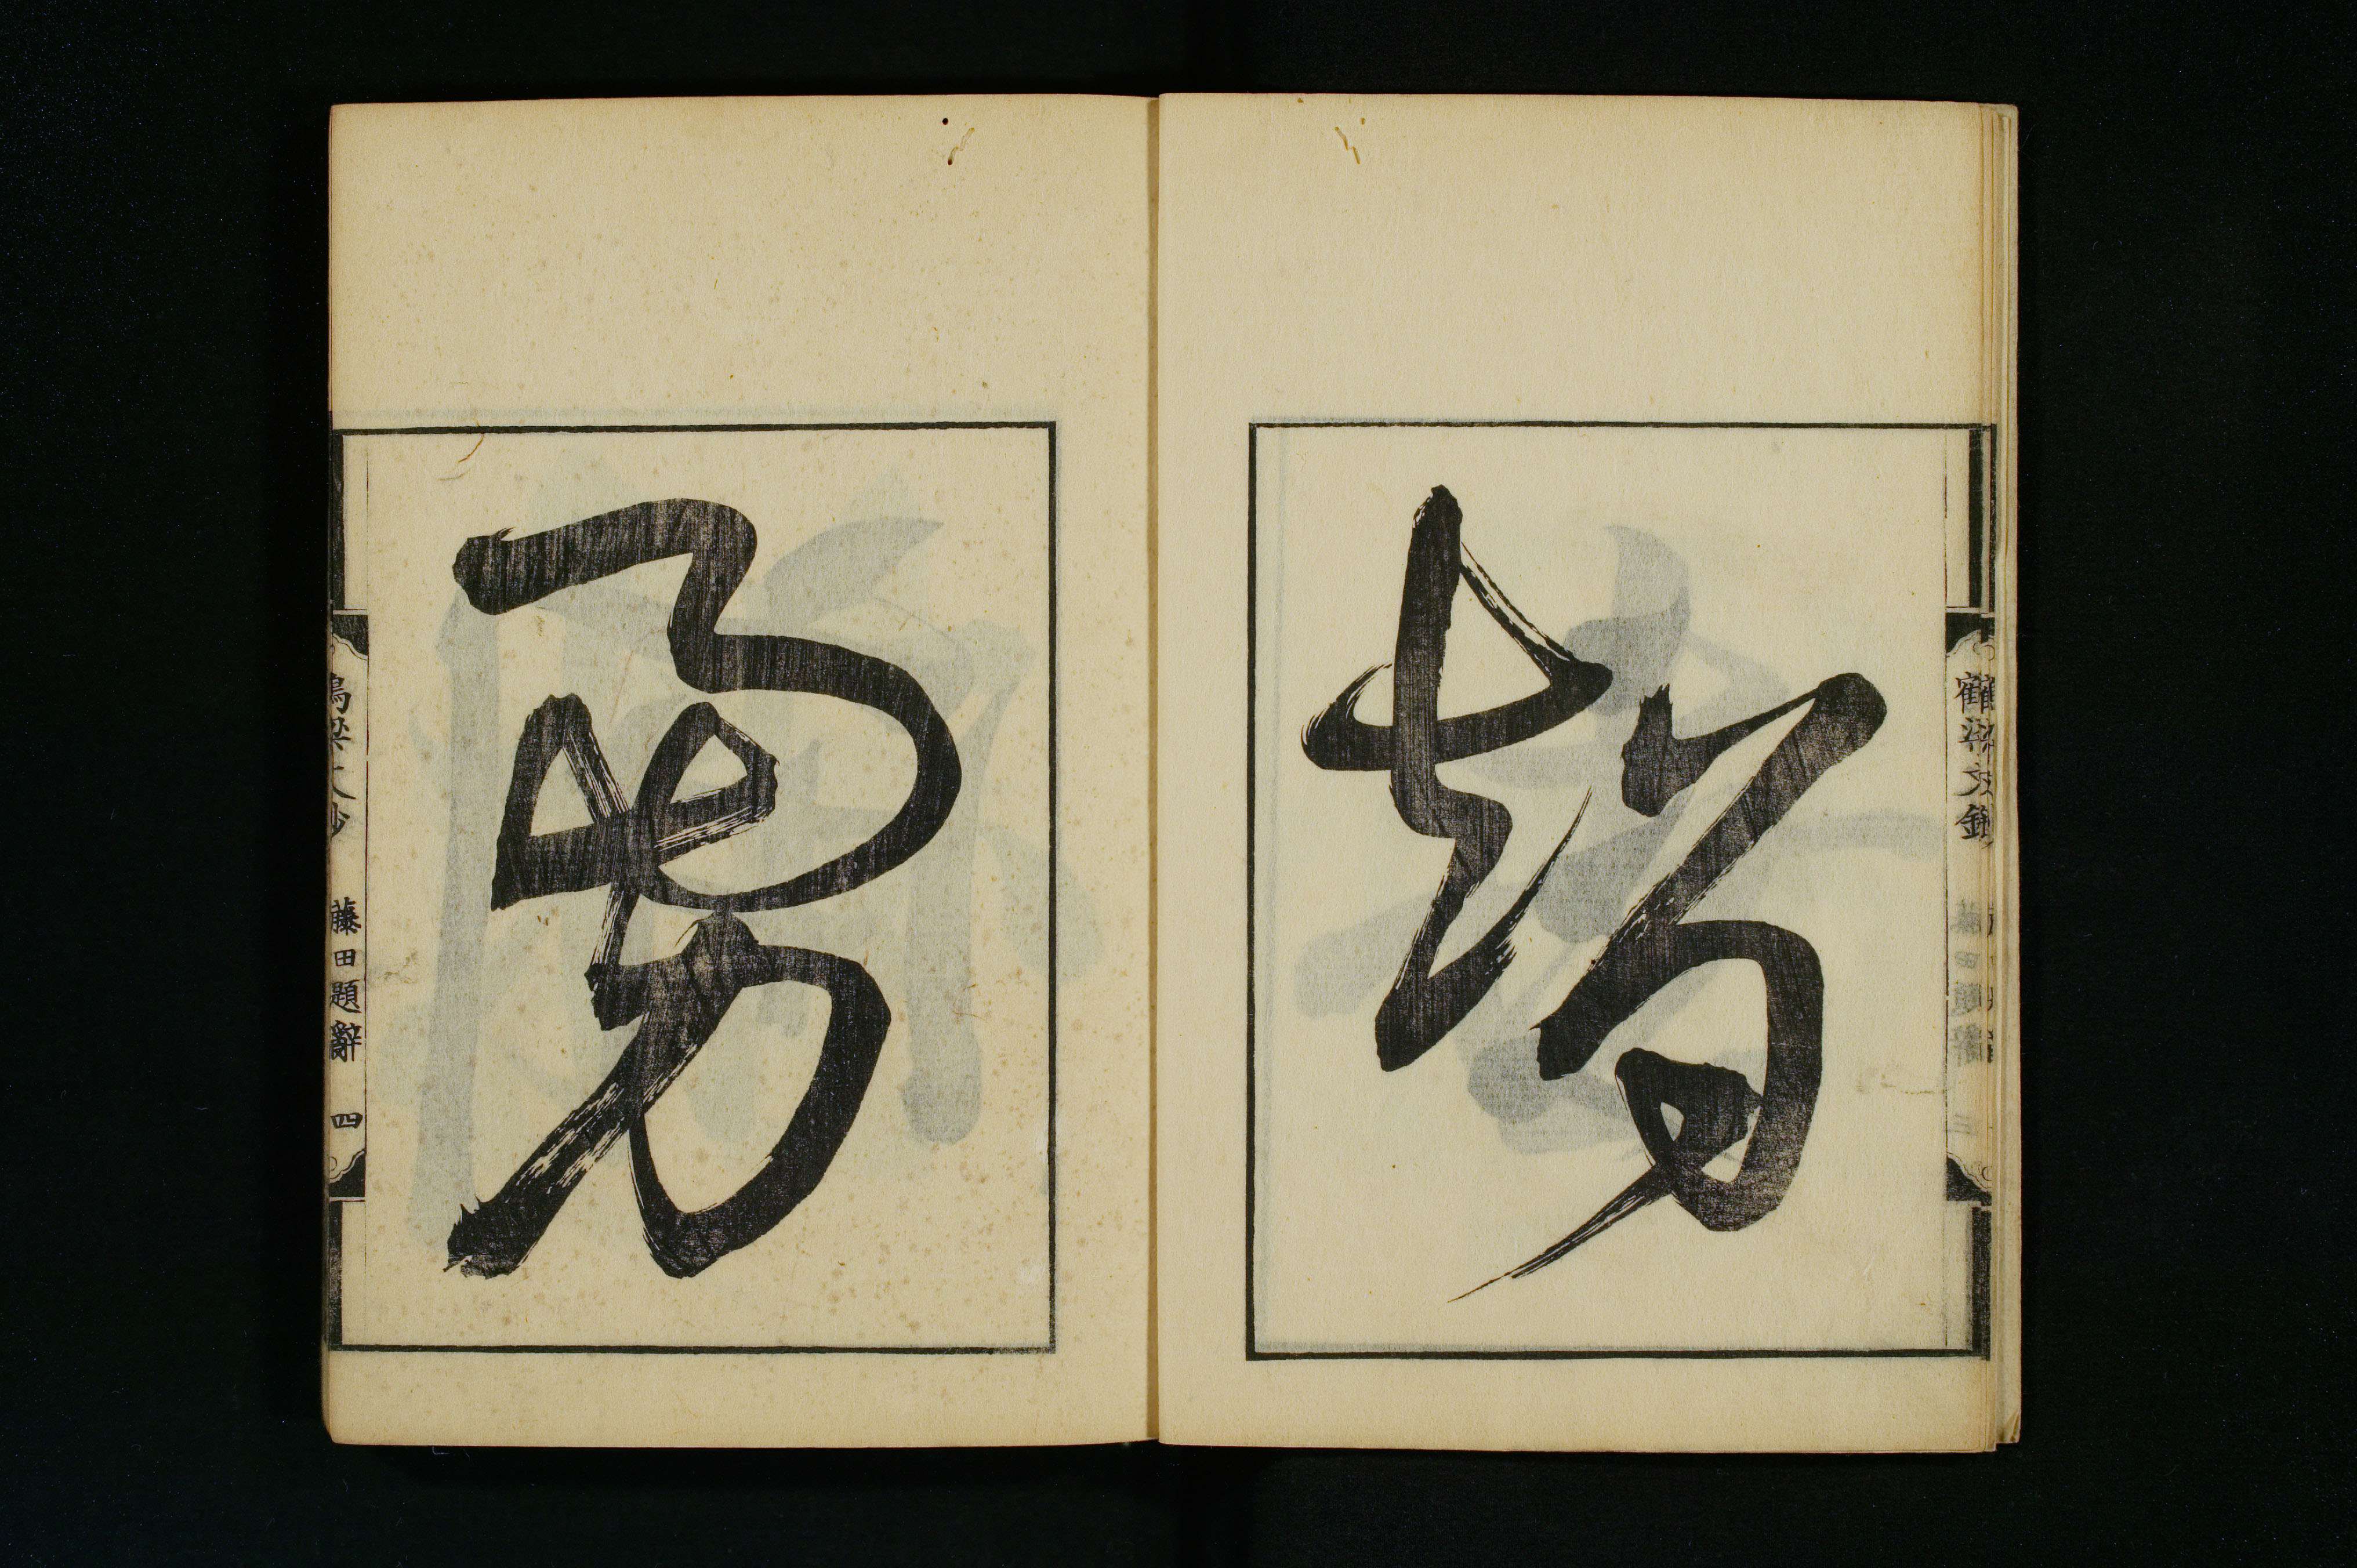 智
勇
鶴梁文鈔
鶴梁文鈔 藤田題辭 四